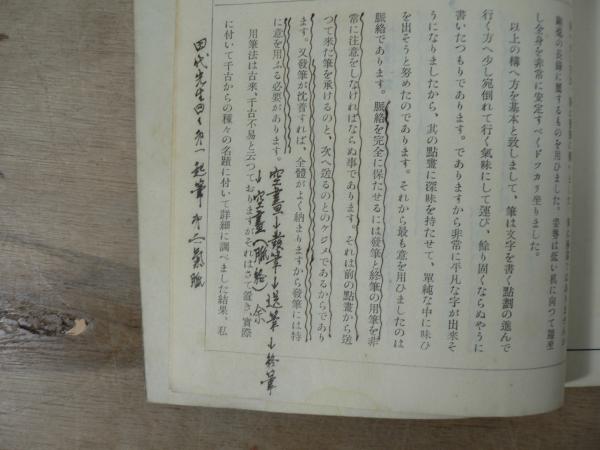 し全身を非常に安定すべくドツカリ坐りました。
以上の構へ方を基本と致しまして、筆は文字を書く點劃の進んで
行く方へ少し宛倒れて行く氣味にして運び、餘り固くならぬやうに
書いたつもりであります。でありますから非常に平凡な字が出來そ
うになりましたから、其の點畫に深味を持たせて、單純な中に味ひ
を出そうと努めたのであります。それから最も意を用ひましたのは
脈絡であります。脈絡を完全に保たせるには發筆と終筆の用筆を非
常に注意をしなければならぬ事であります。それは前の點畫から送
つて來た筆を承けるのと、次へ送るのとのケジメであるからであり
ます。又發筆が沈着すれば、全體がよく納まりますから發筆には特
に意を用ふる必要があります。
空畫→發筆→送筆→終筆
→空畫(脈絡)
用筆法は古來、千古不易と云つておりますがそれはさて置き、實際
に付いて千古からの種々の名蹟に付いて詳細に調べました結果、私
田代先生曰く
起筆